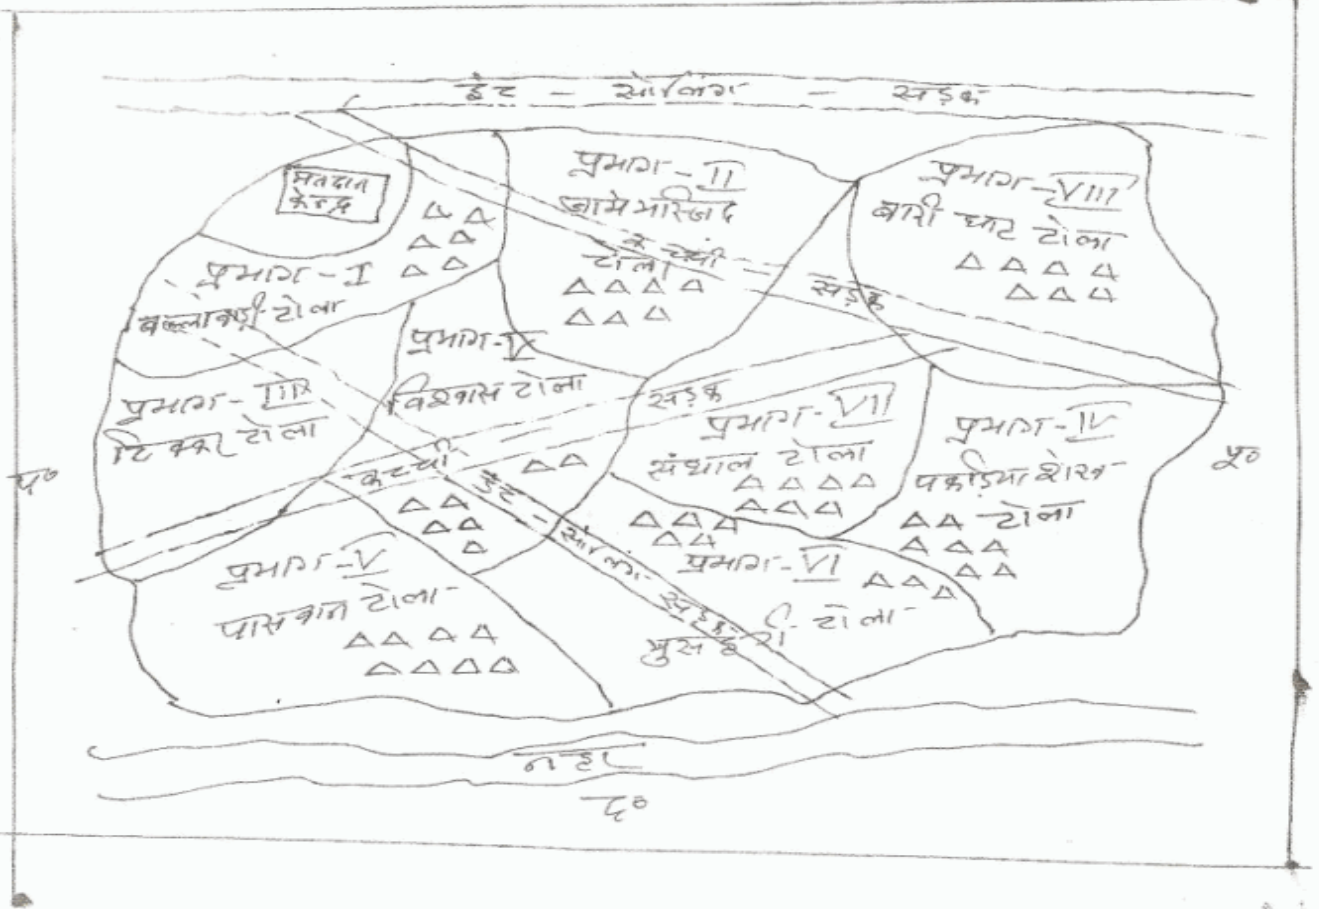 ईट - सोलिंग - सड़क
मतदान
केन्द्र
प्रभाग - I
टोला
प्रभाग - II
जामे मस्जिद
टोला
कच्ची
सड़क
प्रभाग - VIII
बारी घाट टोला
प्रभाग - V
विश्वास टोला
प्रभाग - III
टिक्कर टोला
सड़क
प्रभाग - VII
संथाल टोला
प्रभाग - IV
पकड़िया शेख
टोला
प०
पू०
कच्ची
ईट - सोलिंग -
सड़क
प्रभाग - V
पासवान टोला
प्रभाग - VI
मुसहरी टोला
नहर
द०